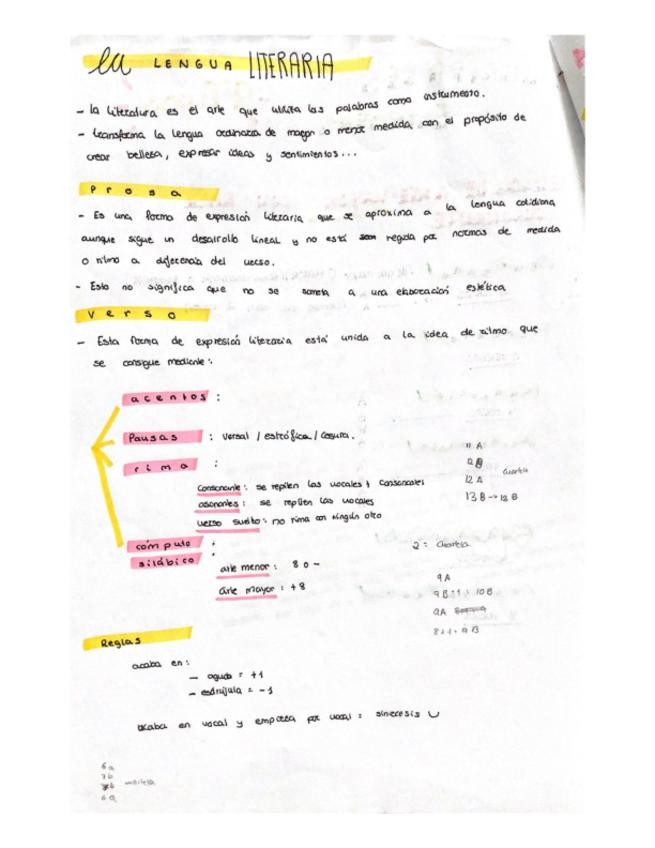 la LENGUA LITERARIA
- la literatura es el arte que utiliza las palabras como instrumento.
- transforma la lengua ordinaria de mayor o menor medida, con el propósito de
crear belleza, expresar ideas y sentimientos...
Prosa
- Es una forma de expresión literaria que se aproxima a la lengua cotidiana
aunque sigue un desarrollo lineal y no está regida por normas de medida
o ritmo a diferencia del verso.
- Esto no significa que no se someta a una elaboración estética
Verso
- Esta forma de expresión literaria está unida a la idea de ritmo que
se consigue mediante:
acentos :
Pausas : versal / estrófica / cesura.
rima :
Consonante: se repiten las vocales y consonantes
asonantes: se repiten las vocales
verso suelto: no rima con ningún otro
11 A
12 B
12 A
13 B → 13 B
cómputo :
silábico
arte menor: 8 o -
arte mayor: +8
2: cuarteta
9A
9B+1: 10B
9A
8+1: 9B
Reglas
acaba en:
- aguda = +1
- esdrújula = -1
acaba en vocal y empieza por vocal = sineresis ∪
6a
7b
6a